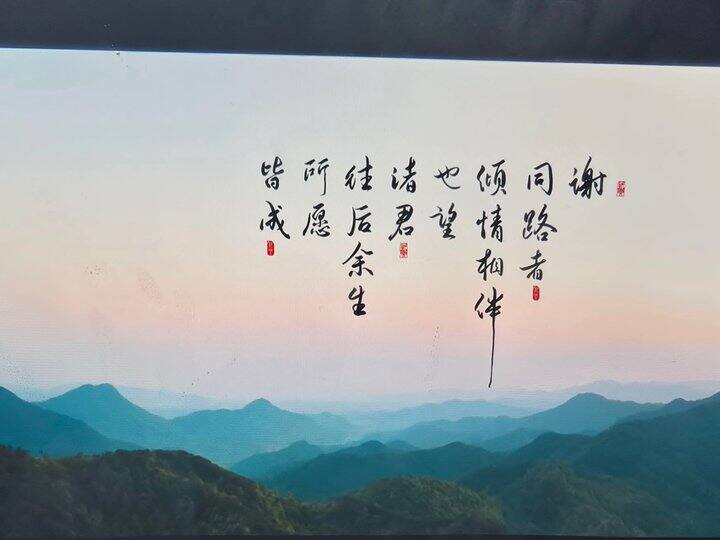 谢
同路者
倾情相伴
也望
诸君
往后余生
所愿
皆成